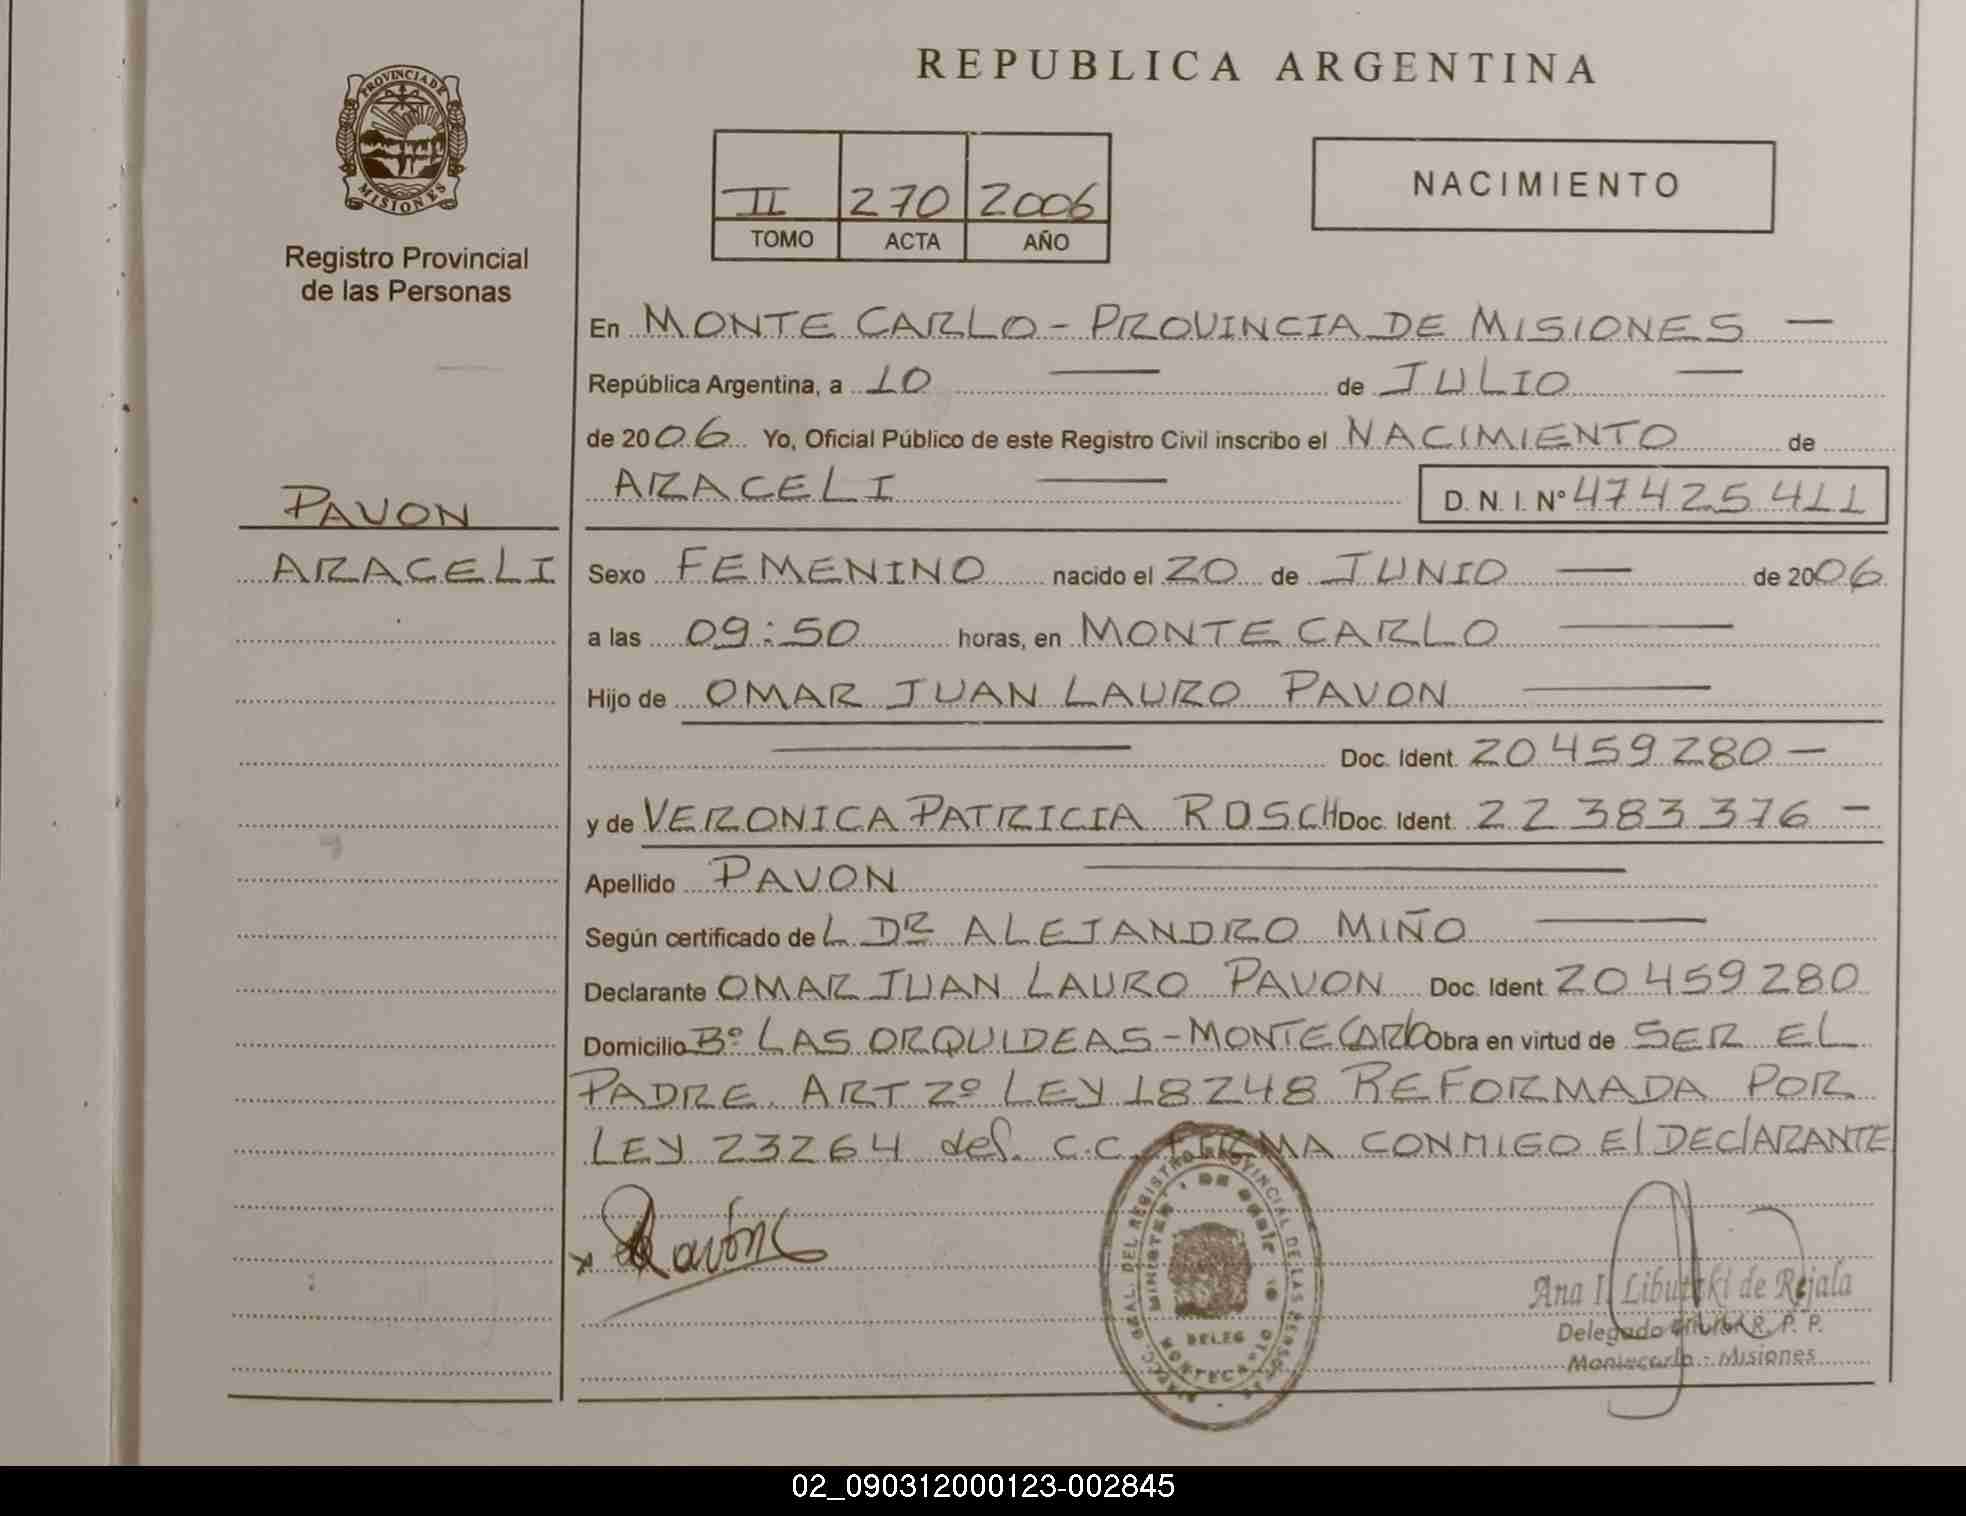 REPUBLICA ARGENTINA
PROVINCIA DE
MISIONES
Registro Provincial
de las Personas
II 270 2006
TOMO ACTA AÑO
NACIMIENTO
En MONTE CARLO - PROVINCIA DE MISIONES —
República Argentina, a 10 — de JULIO —
de 2006 Yo, Oficial Público de este Registro Civil inscribo el NACIMIENTO de
ARACELI — D. N. I. Nº 47425411
PAVON
ARACELI
Sexo FEMENINO nacido el 20 de JUNIO — de 2006
a las 09:50 horas, en MONTE CARLO —
Hijo de OMAR JUAN LAURO PAVON —
— Doc. Ident. 20459280 —
y de VERONICA PATRICIA ROSCH Doc. Ident. 22383376 —
Apellido PAVON —
Según certificado de L DR ALEJANDRO MIÑO —
Declarante OMAR JUAN LAURO PAVON Doc. Ident 20459280
Domicilio Bº LAS ORQUIDEAS - MONTECARLO Obra en virtud de SER EL
PADRE. ART 2º LEY 18248 REFORMADA POR
LEY 23264 del. C.C. FIRMA CONMIGO El DEClARANTE
x Pavon
REGISTRO PROVINCIAL DE LAS PERSONAS
DELEG
MONTECARLO
Ana I. Libutzki de Rejala
Delegado Titular R. P. P.
Montecarlo - Misiones
02_090312000123-002845